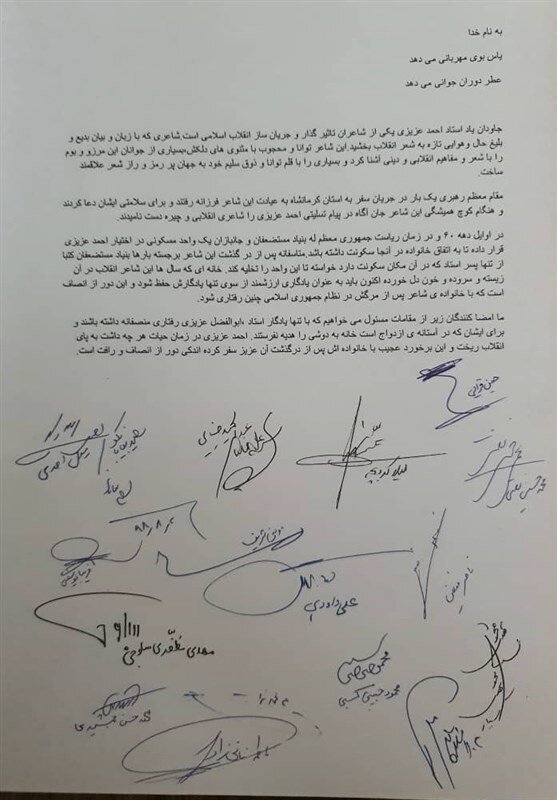 به نام خدا
یاس بوی مهربانی می دهد
عطر دوران جوانی می دهد
جاودان یاد استاد احمد عزیزی یکی از شاعران تاثیر گذار و جریان ساز انقلاب اسلامی است.شاعری که با زبان و بیان بدیع و
بلیغ حال وهوایی تازه به شعر انقلاب بخشید.این شاعر توانا و محجوب با مثنوی های دلکش،بسیاری از جوانان این مرزو و بوم
را با شعر و مفاهیم انقلابی و دینی آشنا کرد و بسیاری را با قلم توانا و ذوق سلیم خود به جهان پر رمز و راز شعر علاقمند
ساخت.
مقام معظم رهبری یک بار در جریان سفر به استان کرمانشاه به عیادت این شاعر فرزانه رفتند و برای سلامتی ایشان دعا کردند
و هنگام کوچ همیشگی این شاعر جان آگاه در پیام تسلیتی احمد عزیزی را شاعری انقلابی و چیره دست نامیدند.
در اوایل دهه ۶۰ و در زمان ریاست جمهوری معظم له بنیاد مستضعفان و جانبازان یک واحد مسکونی در اختیار احمد عزیزی
قرار داده تا به اتفاق خانواده در آنجا سکونت داشته باشد.متاسفانه پس از در گذشت این شاعر برجسته بارها بنیاد مستضعفان کتبا
از تنها پسر استاد که در آن مکان سکونت دارد خواسته تا این واحد را تخلیه کند. خانه ای که سال ها این شاعر انقلاب در آن
زیسته و سروده و خون دل خورده اکنون باید به عنوان یادگاری ارزشمند از سوی تنها یادگارش حفظ شود و این دور از انصاف
است که با خانواده ی شاعر پس از مرگش در نظام جمهوری اسلامی چنین رفتاری شود.
ما امضا کنندگان زیر از مقامات مسئول می خواهیم که با تنها یادگار استاد ،ابوالفضل عزیزی رفتاری منصفانه داشته باشند و
برای ایشان که در آستانه ی ازدواج است خانه به دوشی را هدیه نفرستند. احمد عزیزی در زمان حیات هر چه داشت به پای
انقلاب ریخت و این برخورد عجیب با خانواده اش پس از درگذشت آن عزیز سفر کرده اندکی دور از انصاف و رافت است.
علی داودی
ناصر فیض
محمود حبیبی کسبی